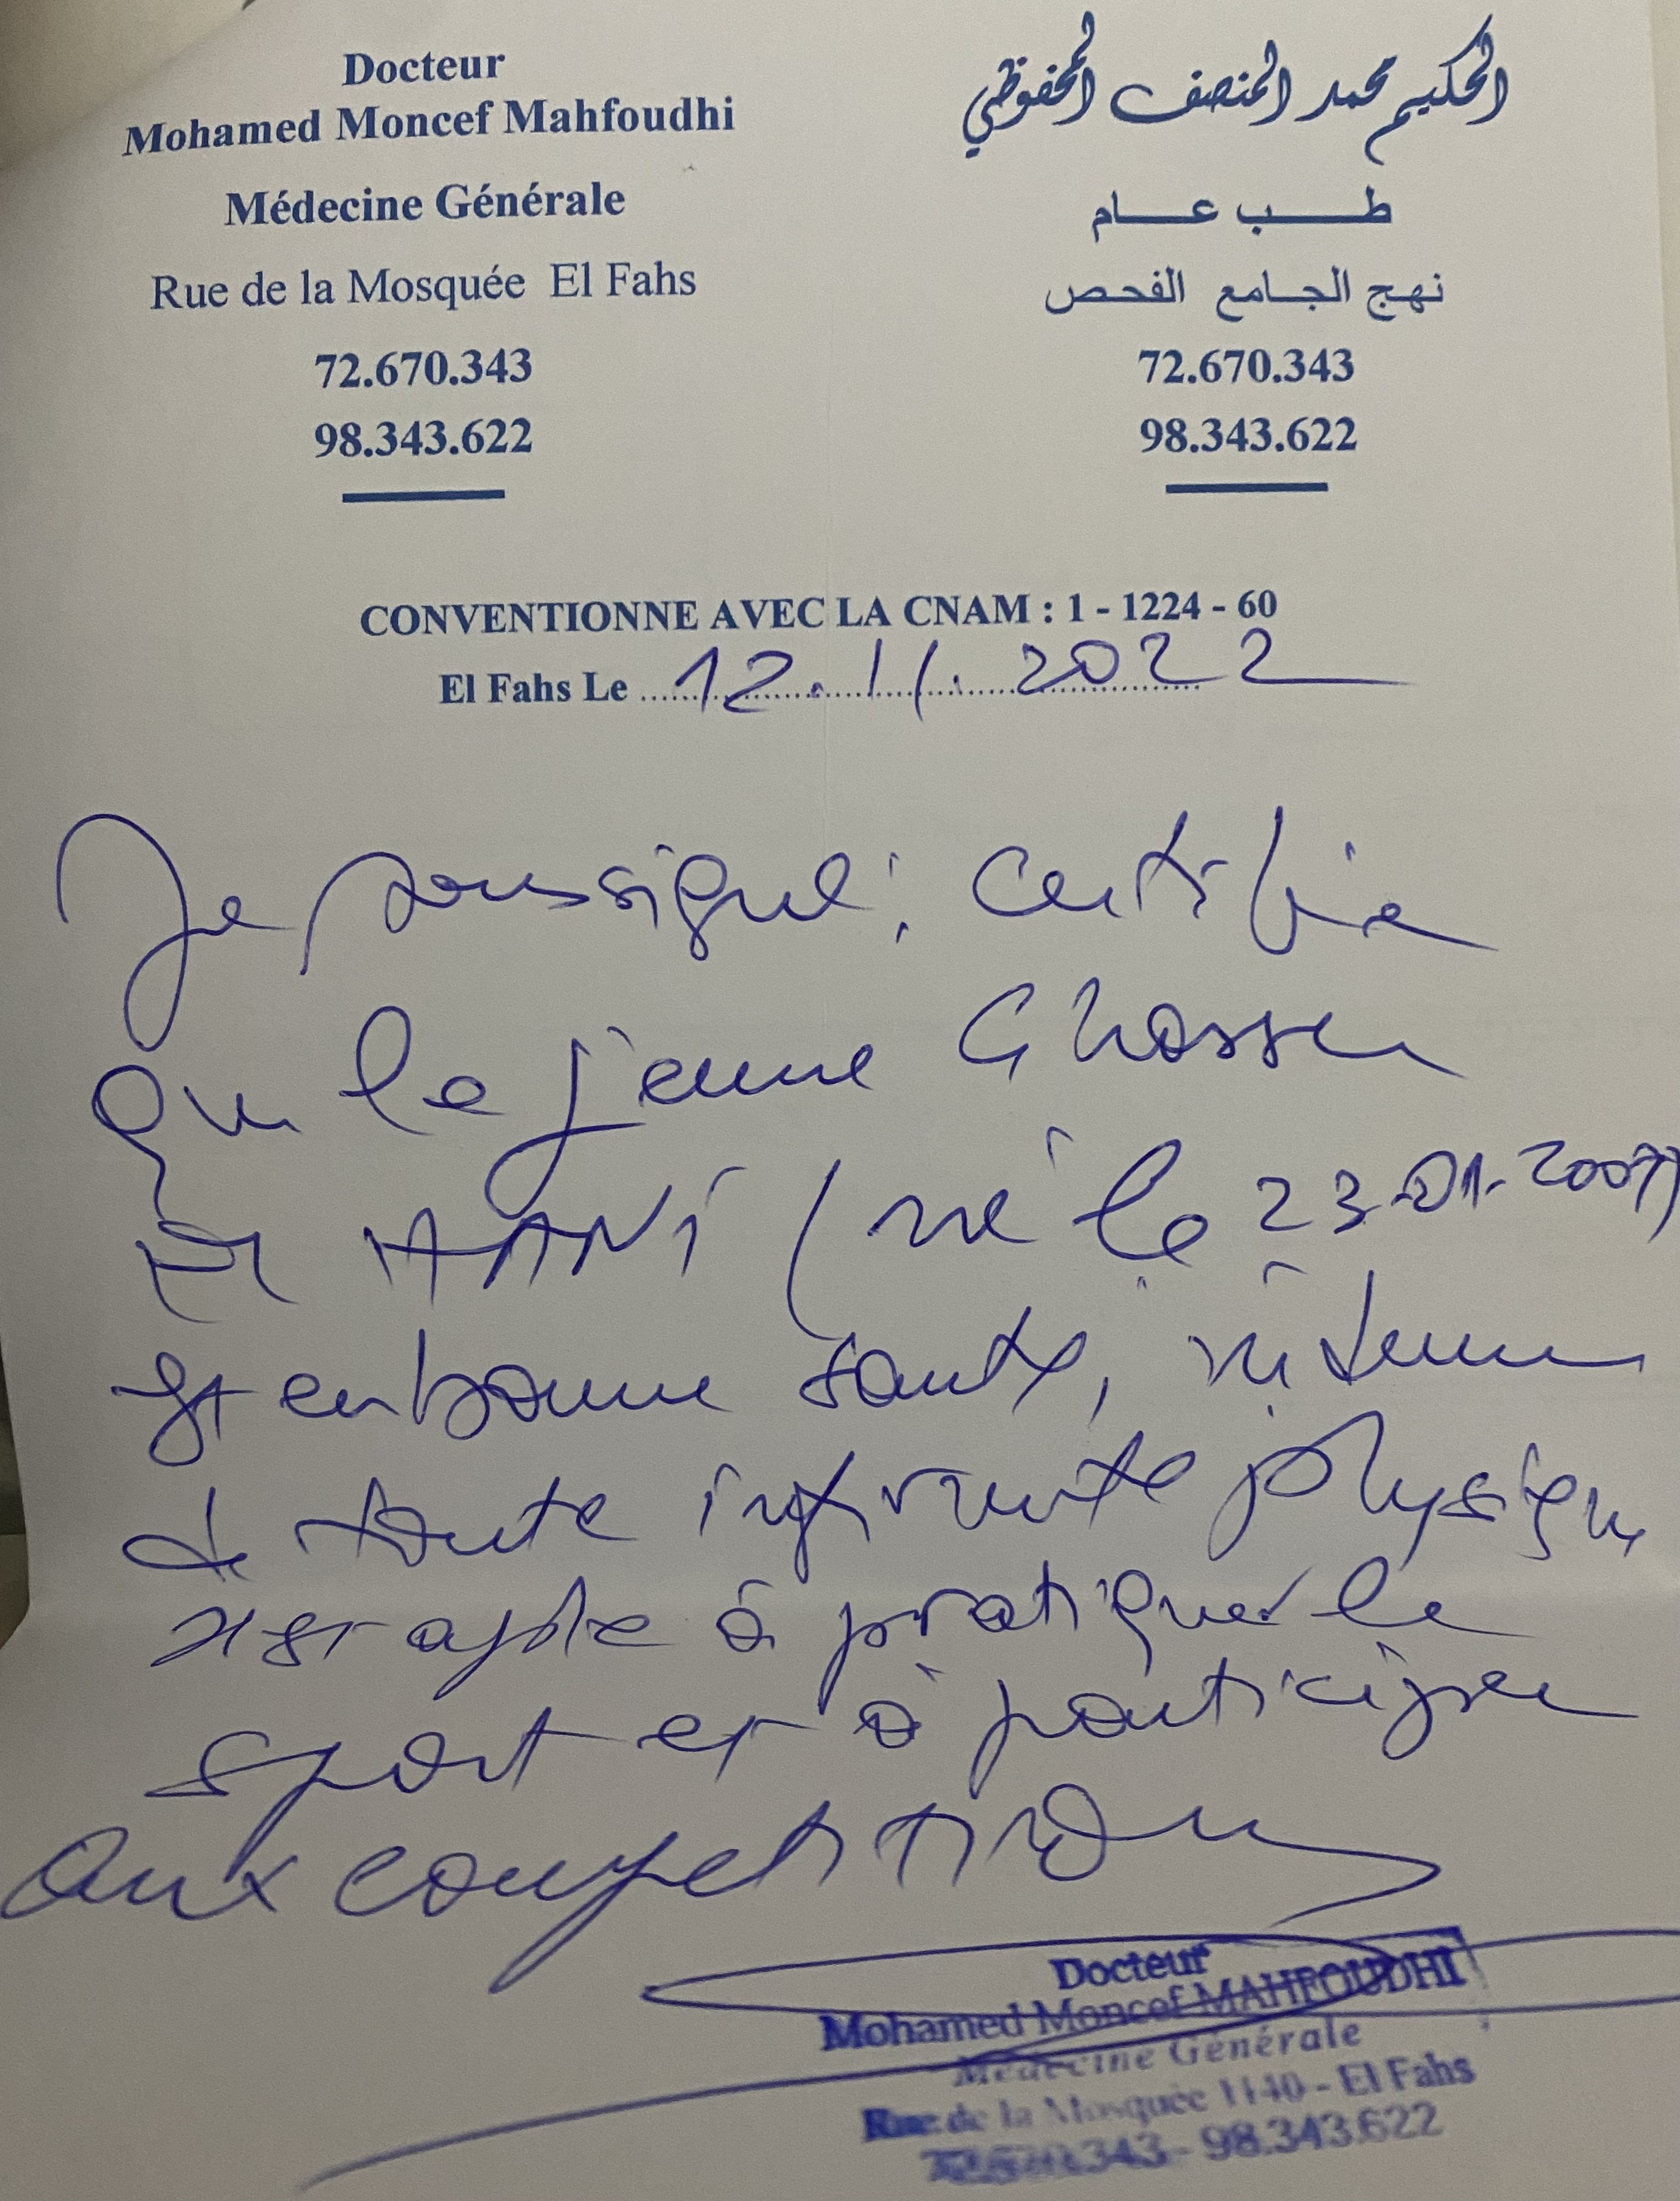 Docteur
Mohamed Moncef Mahfoudhi
Médecine Générale
Rue de la Mosquée El Fahs
72.670.343
98.343.622
الحكيم محمد المنصف المحفوظي
طب عام
نهج الجامع الفحص
72.670.343
98.343.622
CONVENTIONNE AVEC LA CNAM : 1 - 1224 - 60
El Fahs Le 12.11.2022
Je soussigné, certifie
que le jeune Ghassen
El HANI (né le 23-01-2007)
est en bonne santé, indemne
de toute infirmité physique
est apte à pratiquer le
sport et à participer
aux compétitions
Docteur
Mohamed Moncef MAHFOUDHI
Médecine Générale
Rue de la Mosquée 1140 - El Fahs
343 - 98.343.622